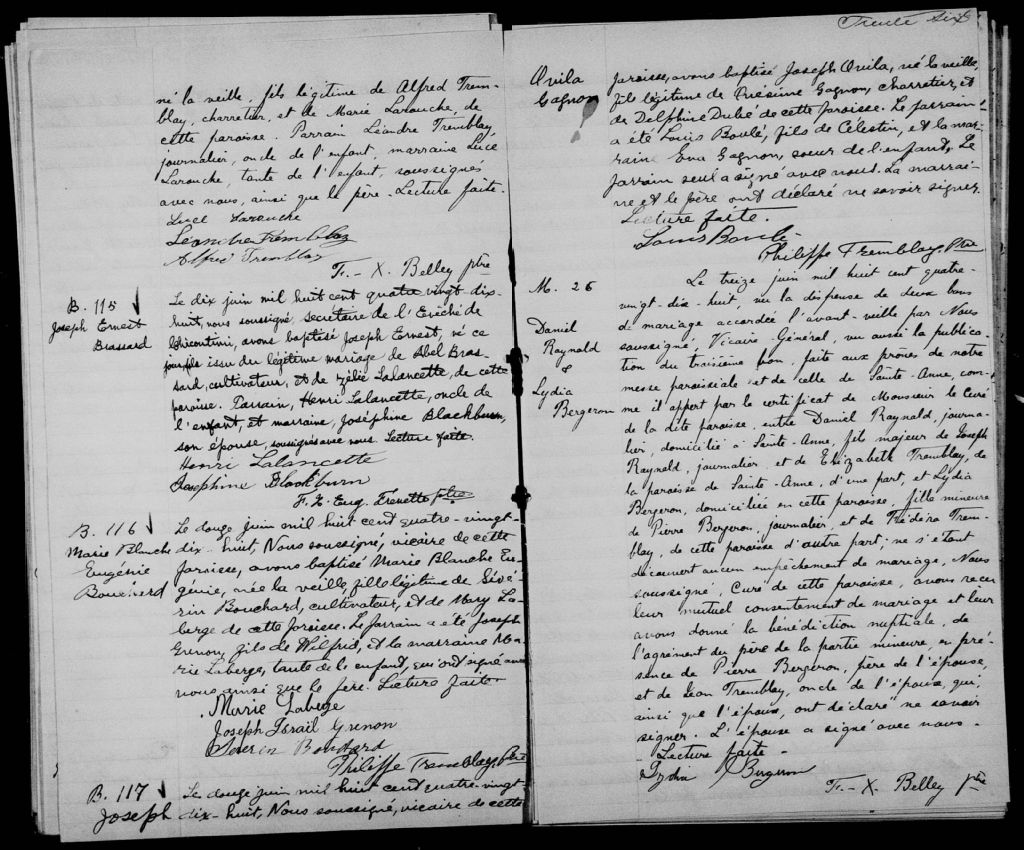 né la veille, fils légitime de Alfred Trem-
blay, charretier, et de Marie Larouche, de
cette paroisse. Parrain Léandre Tremblay,
journalier, oncle de l'enfant, marraine Luce
Larouche, tante de l'enfant, soussignés
avec nous, ainsi que le père. Lecture faite.
Luce Larouche
Léandre Tremblay
Alfred Tremblay
F.-X. Belley ptre
B. 115
Joseph Ernest
Brassard
Le dix juin mil huit cent quatre vingt-dix-
huit, nous soussigné, secrétaire de l'Evêché de
Chicoutimi, avons baptisé Joseph Ernest, né ce
jour, fils issu du légitime mariage de Abel Bras-
sard, cultivateur, et de Zélie Lalancette, de cette
paroisse. Parrain, Henri Lalancette, oncle de
l'enfant, et marraine, Joséphine Blackburn,
son épouse, soussignés avec nous. Lecture faite.
Henri Lalancette
Josephine Blackburn
F. X. Eug. Frenette ptre
B. 116
Marie Blanche
Eugénie
Bouchard
Le douze juin mil huit cent quatre-vingt-
dix-huit, Nous soussigné, vicaire de cette
paroisse, avons baptisé Marie Blanche Eu-
génie, née la veille, fille légitime de Sévé-
rin Bouchard, cultivateur, et de Mary La-
berge de cette paroisse. Le parrain a été Joseph
Grenon, fils de Wilfrid, et la marraine Ma-
rie Laberge, tante de l'enfant, qui ont signé avec
nous ainsi que le père. Lecture faite.
Marie Laberge
Joseph Israil Grenon
Severin Bouchard
Philippe Tremblay, Ptre
B. 117
Joseph
Le douze juin mil huit cent quatre-vingt-
dix-huit, Nous soussigné, vicaire de cette
Trente six
Ovila
Gagnon
paroisse, avons baptisé Joseph Ovila, né la veille,
fils légitime de Onésime Gagnon, charretier, et
de Delphine Dubé de cette paroisse. Le parrain
a été Louis Boulé, fils de Célestin, et la mar-
raine Eva Gagnon, soeur de l'enfant. Le
parrain seul a signé avec nous. La marrai-
ne et le père ont déclaré ne savoir signer
Lecture faite.
Louis Boulé
Philippe Tremblay, Ptre
M. 26
Daniel
Raynald
&
Lydia
Bergeron
Le treize juin mil huit cent quatre-
vingt-dix-huit, vu la dispense de deux bans
de mariage accordée l'avant-veille par Nous
soussigné, Vicaire-Général, vu aussi la publica-
tion du troisième ban, faite aux prônes de notre
messe paroissiale et de celle de Sainte-Anne, com-
me il appert par le certificat de Monsieur le Curé
de la dite paroisse, entre Daniel Raynald, journa-
lier, domicilié à Sainte-Anne, fils majeur de Joseph
Raynald, journalier, et de Elizabeth Tremblay, de
la paroisse de Sainte-Anne, d'une part, et Lydia
Bergeron, domiciliée en cette paroisse, fille mineure
de Pierre Bergeron, journalier, et de Trem-
blay, de cette paroisse d'autre part; ne s'étant
découvert aucun empêchement de mariage, Nous
soussigné, Curé de cette paroisse, avons reçu
leur mutuel consentement de mariage et leur
avons donné la bénédiction nuptiale, de
l'agrément du père de la partie mineure, en pré-
sence de Pierre Bergeron, père de l'épouse,
et de Jean Tremblay, oncle de l'époux, qui,
ainsi que l'époux, ont déclaré ne savoir
signer. L'épouse a signé avec nous.
Lecture faite.
Bergeron
F.-X. Belley ptre